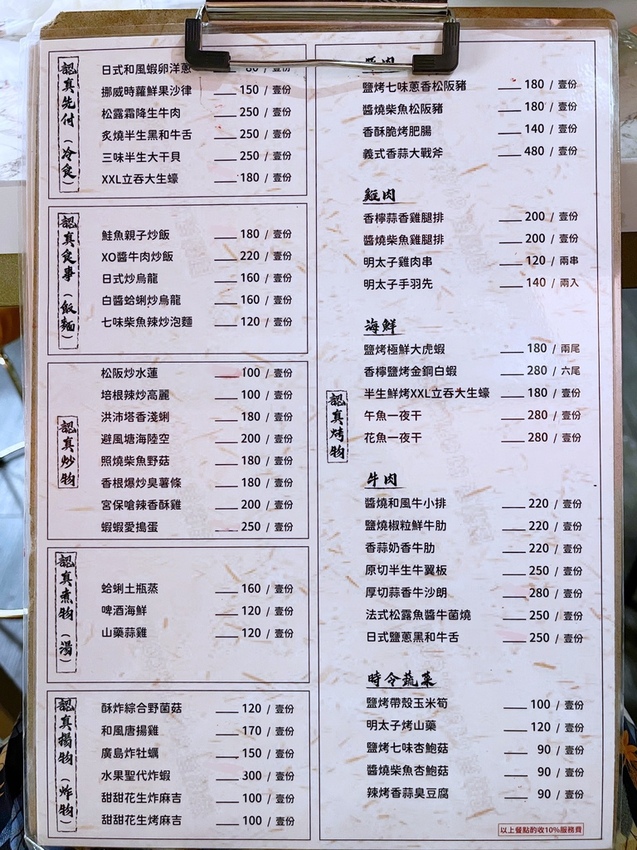 認真先付（冷食）
日式和風蝦卵洋蔥 80 / 壹份
挪威時蘿鮮果沙律 150 / 壹份
松露霜降生牛肉 250 / 壹份
炙燒半生黑和牛舌 250 / 壹份
三味半生大干貝 250 / 壹份
XXL立吞大生蠔 180 / 壹份
認真食事（飯麵）
鮭魚親子炒飯 180 / 壹份
XO醬牛肉炒飯 220 / 壹份
日式炒烏龍 160 / 壹份
白醬蛤蜊炒烏龍 160 / 壹份
七味柴魚辣炒泡麵 120 / 壹份
認真炒物
松阪炒水蓮 100 / 壹份
培根辣炒高麗 100 / 壹份
洪沛塔香淺蜊 180 / 壹份
避風塘海陸空 200 / 壹份
照燒柴魚野菇 180 / 壹份
香根爆炒臭薯條 180 / 壹份
宮保嗆辣香酥雞 200 / 壹份
蝦蝦愛搗蛋 250 / 壹份
認真煮物（湯）
蛤蜊土瓶蒸 160 / 壹份
啤酒海鮮 120 / 壹份
山藥蒜雞 120 / 壹份
認真揚物（炸物）
酥炸綜合野菌菇 120 / 壹份
和風唐揚雞 170 / 壹份
廣島炸牡蠣 150 / 壹份
水果聖代炸蝦 300 / 壹份
甜甜花生炸麻吉 100 / 壹份
甜甜花生烤麻吉 100 / 壹份
認真烤物
鹽烤七味蔥香松阪豬 180 / 壹份
醬燒柴魚松阪豬 180 / 壹份
香酥脆烤肥腸 140 / 壹份
義式香蒜大戰斧 480 / 壹份
雞肉
香檸蒜香雞腿排 200 / 壹份
醬燒柴魚雞腿排 200 / 壹份
明太子雞肉串 120 / 兩串
明太子手羽先 140 / 兩入
海鮮
鹽烤極鮮大虎蝦 180 / 兩尾
香檸鹽烤金鋼白蝦 280 / 六尾
半生鮮烤XXL立吞大生蠔 180 / 壹份
午魚一夜干 280 / 壹份
花魚一夜干 280 / 壹份
牛肉
醬燒和風牛小排 220 / 壹份
鹽燒椒粒鮮牛肋 220 / 壹份
香蒜奶香牛肋 220 / 壹份
原切半生牛翼板 250 / 壹份
厚切蒜香牛沙朗 280 / 壹份
法式松露魚醬牛菌燒 250 / 壹份
日式鹽蔥黑和牛舌 250 / 壹份
時令蔬菜
鹽烤帶殼玉米筍 100 / 壹份
明太子烤山藥 120 / 壹份
鹽烤七味杏鮑菇 90 / 壹份
醬燒柴魚杏鮑菇 90 / 壹份
辣烤香蒜臭豆腐 90 / 壹份
以上餐點酌收10%服務費